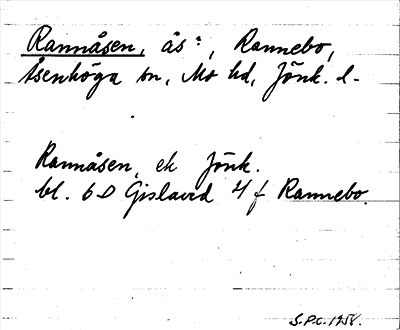 Rannåsen, ås:, Rannebo,
Åsenhöga sn, Mo hd, Jönk. l.
Rannåsen, ek Jönk.
bl. 6D Gislaved 4 f Rannebo.
S.P.C. 1958.